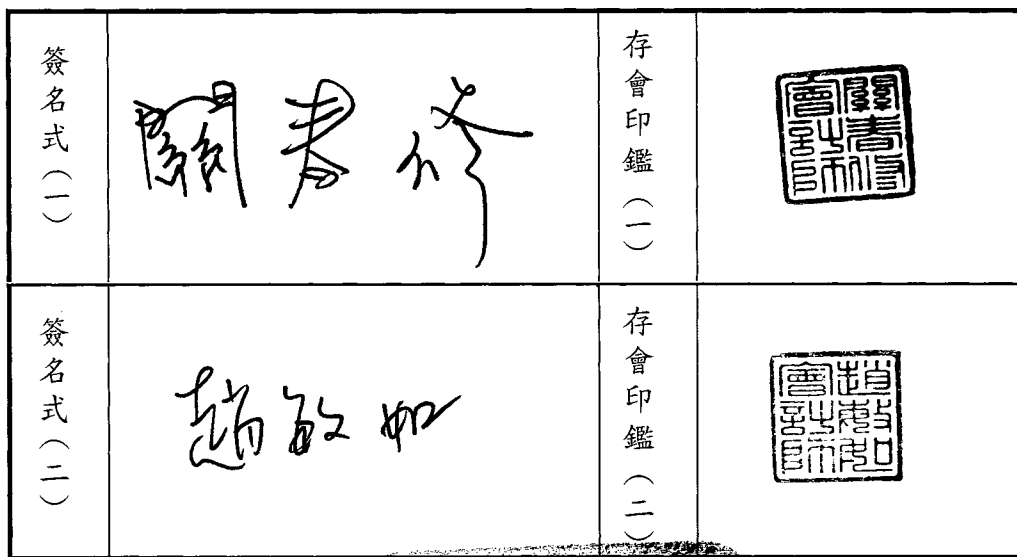 簽名式（一）
關春修
存會印鑑（一）
關春修會計師
簽名式（二）
趙敏如
存會印鑑（二）
趙敏如會計師